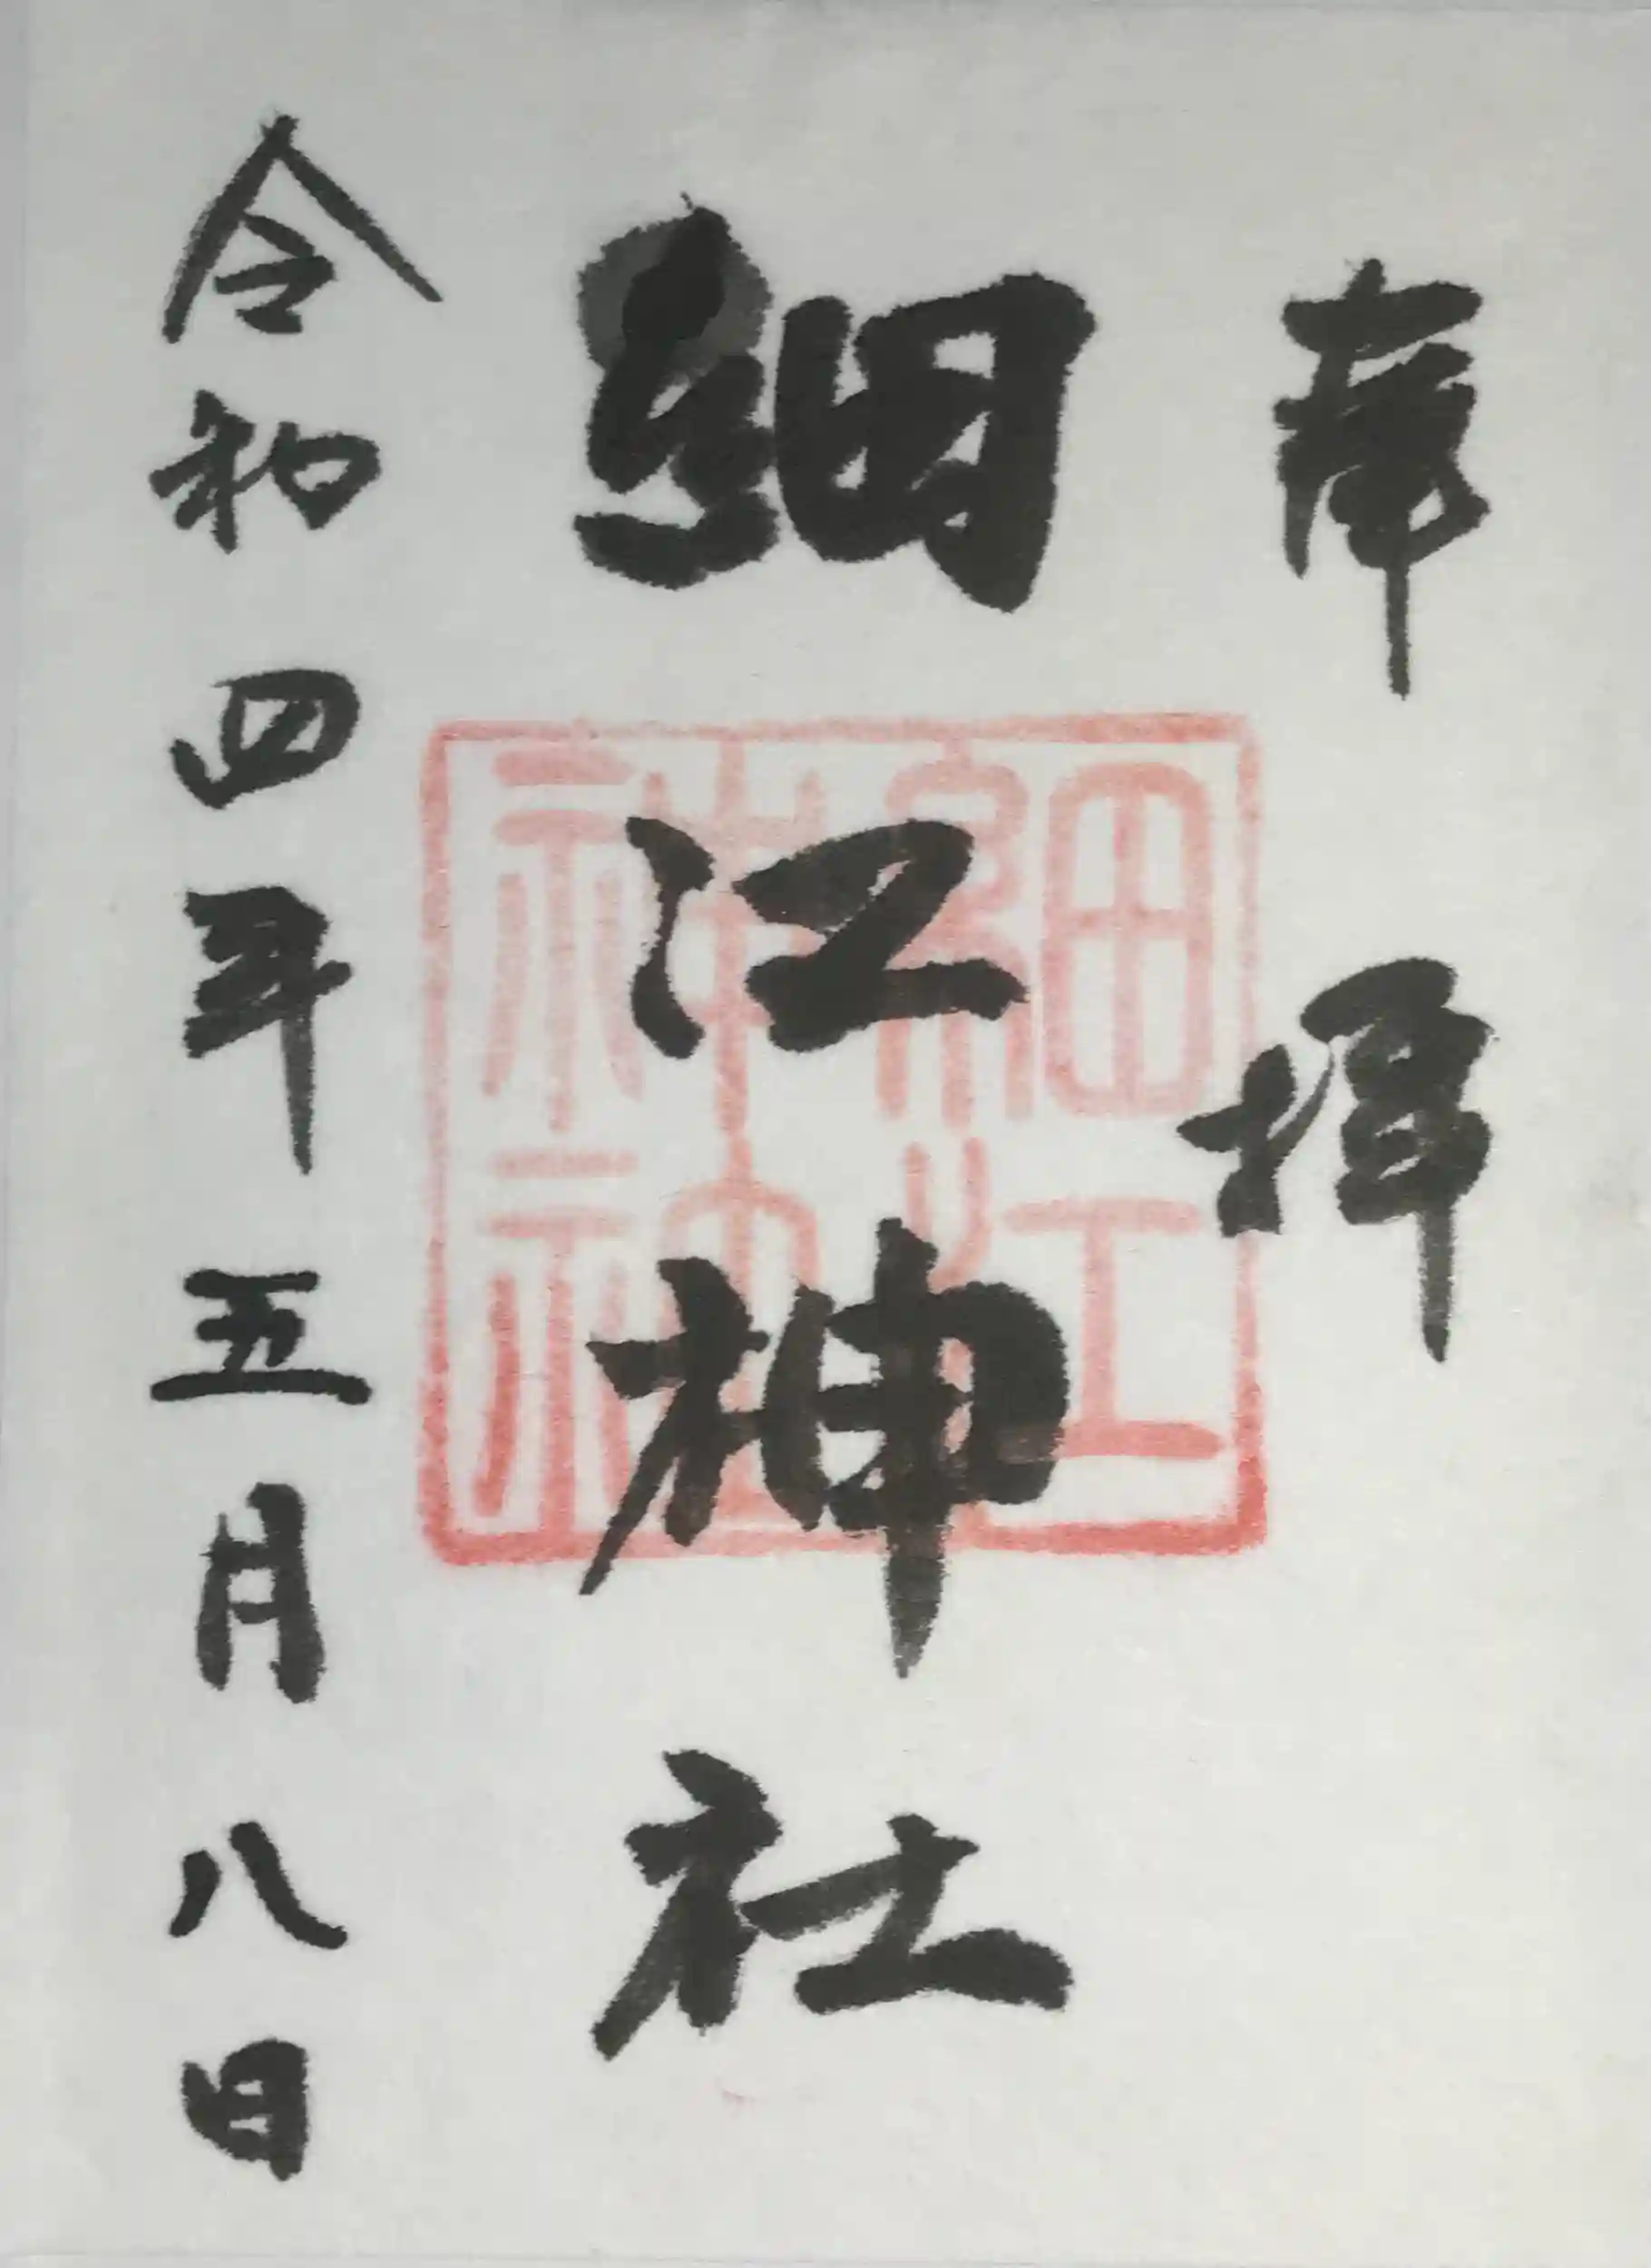 奉拝
細江神社
細江神社
令和四年五月八日